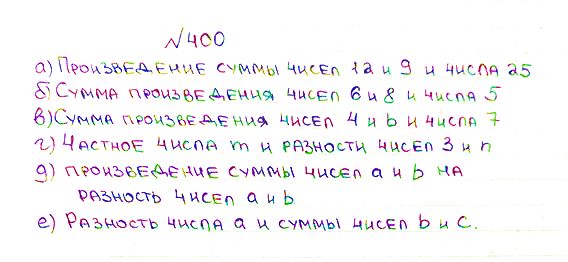 №400
а) Произведение суммы чисел 12 и 9 и числа 25
б) Сумма произведения чисел 6 и 8 и числа 5
в) Сумма произведения чисел 4 и b и числа 7
г) Частное числа m и разности чисел 3 и n
д) произведение суммы чисел a и b на
разность чисел a и b
е) Разность числа a и суммы чисел b и c.